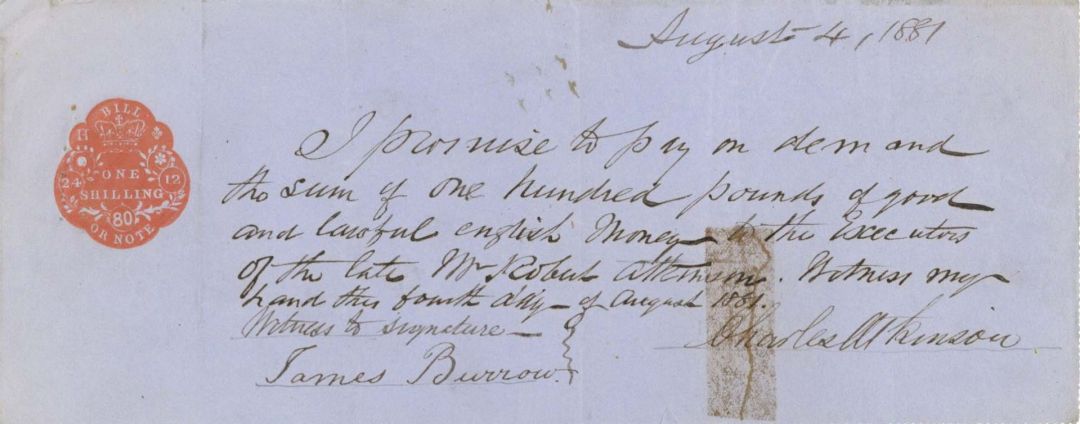 August 4, 1881
BILL
ONE
SHILLING
24 12
80
OR NOTE
I promise to pay on demand
the sum of one hundred pounds of good
and lawful english Money to the Executors
of the late Mr Robert Atkinson. Witness my
hand this fourth day of August 1881.
Witness to signature
Charles Atkinson
James Burrow